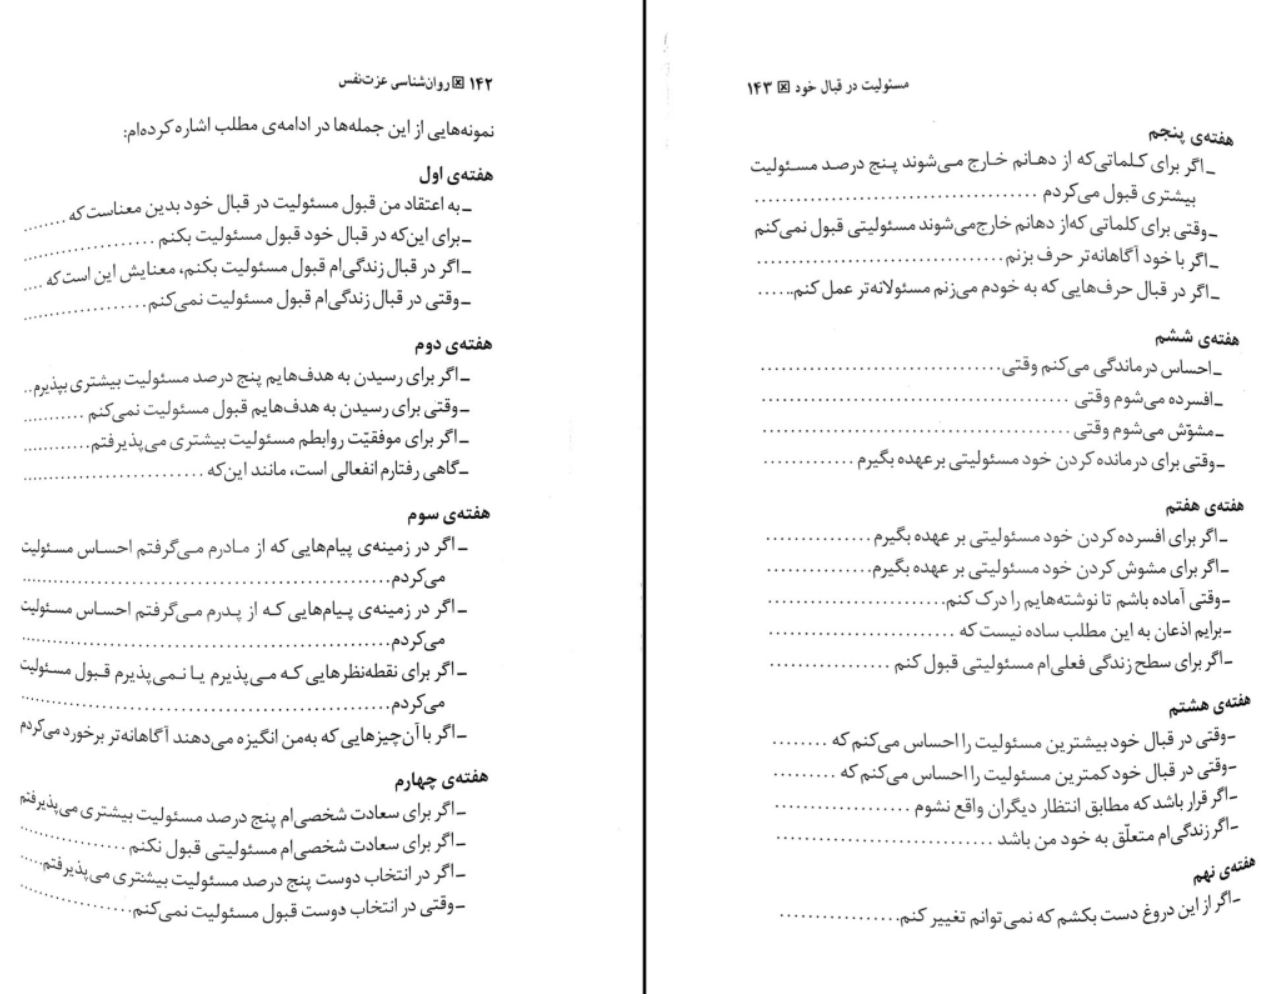 ۱۴۲ روان‌شناسی عزت‌نفس
نمونه‌هایی از این جمله‌ها در ادامه‌ی مطلب اشاره کرده‌ام:
هفته‌ی اول
ـ به اعتقاد من قبول مسئولیت در قبال خود بدین معناست که .......
ـ برای این‌که در قبال خود قبول مسئولیت بکنم ....................
ـ اگر در قبال زندگی‌ام قبول مسئولیت بکنم، معنایش این است که ....
ـ وقتی در قبال زندگی‌ام قبول مسئولیت نمی‌کنم....................
هفته‌ی دوم
ـ اگر برای رسیدن به هدف‌هایم پنج درصد مسئولیت بیشتری بپذیرم..
ـ وقتی برای رسیدن به هدف‌هایم قبول مسئولیت نمی‌کنم ...........
ـ اگر برای موفقیّت روابطم مسئولیت بیشتری می‌پذیرفتم............
ـ گاهی رفتارم انفعالی است، مانند این‌که ...........................
هفته‌ی سوم
ـ اگر در زمینه‌ی پیام‌هایی که از مادرم می‌گرفتم احساس مسئولیت
می‌کردم.......................................................
ـ اگر در زمینه‌ی پیام‌هایی که از پدرم می‌گرفتم احساس مسئولیت
می‌کردم.......................................................
ـ اگر برای نقطه‌نظرهایی که می‌پذیرم یا نمی‌پذیرم قبول مسئولیت
می‌کردم.......................................................
ـ اگر با آن‌چیزهایی که به‌من انگیزه می‌دهند آگاهانه‌تر برخورد می‌کردم
هفته‌ی چهارم
ـ اگر برای سعادت شخصی‌ام پنج درصد مسئولیت بیشتری می‌پذیرفتم
ـ اگر برای سعادت شخصی‌ام مسئولیتی قبول نکنم ................
ـ اگر در انتخاب دوست پنج درصد مسئولیت بیشتری می‌پذیرفتم.....
ـ وقتی در انتخاب دوست قبول مسئولیت نمی‌کنم..................
مسئولیت در قبال خود ۱۴۳
هفته‌ی پنجم
ـ اگر برای کلماتی‌که از دهانم خارج می‌شوند پنج درصد مسئولیت
بیشتری قبول می‌کردم ..................................
ـ وقتی برای کلماتی که‌از دهانم خارج‌می‌شوند مسئولیتی قبول نمی‌کنم
ـ اگر با خود آگاهانه‌تر حرف بزنم...................................
ـ اگر در قبال حرف‌هایی که به خودم می‌زنم مسئولانه‌تر عمل کنم......
هفته‌ی ششم
ـ احساس درماندگی می‌کنم وقتی..................................
ـ افسرده می‌شوم وقتی ..........................................
ـ مشوّش می‌شوم وقتی...........................................
ـ وقتی برای درمانده کردن خود مسئولیتی برعهده بگیرم .............
هفته‌ی هفتم
ـ اگر برای افسرده کردن خود مسئولیتی بر عهده بگیرم................
ـ اگر برای مشوش کردن خود مسئولیتی بر عهده بگیرم................
ـ وقتی آماده باشم تا نوشته‌هایم را درک کنم..........................
ـ برایم اذعان به این مطلب ساده نیست که ..........................
ـ اگر برای سطح زندگی فعلی‌ام مسئولیتی قبول کنم .................
هفته‌ی هشتم
ـ وقتی در قبال خود بیشترین مسئولیت را احساس می‌کنم که ........
ـ وقتی در قبال خود کمترین مسئولیت را احساس می‌کنم که .........
ـ اگر قرار باشد که مطابق انتظار دیگران واقع نشوم ...................
ـ اگر زندگی‌ام متعلّق به خود من باشد ..............................
هفته‌ی نهم
ـ اگر از این دروغ دست بکشم که نمی‌توانم تغییر کنم.................